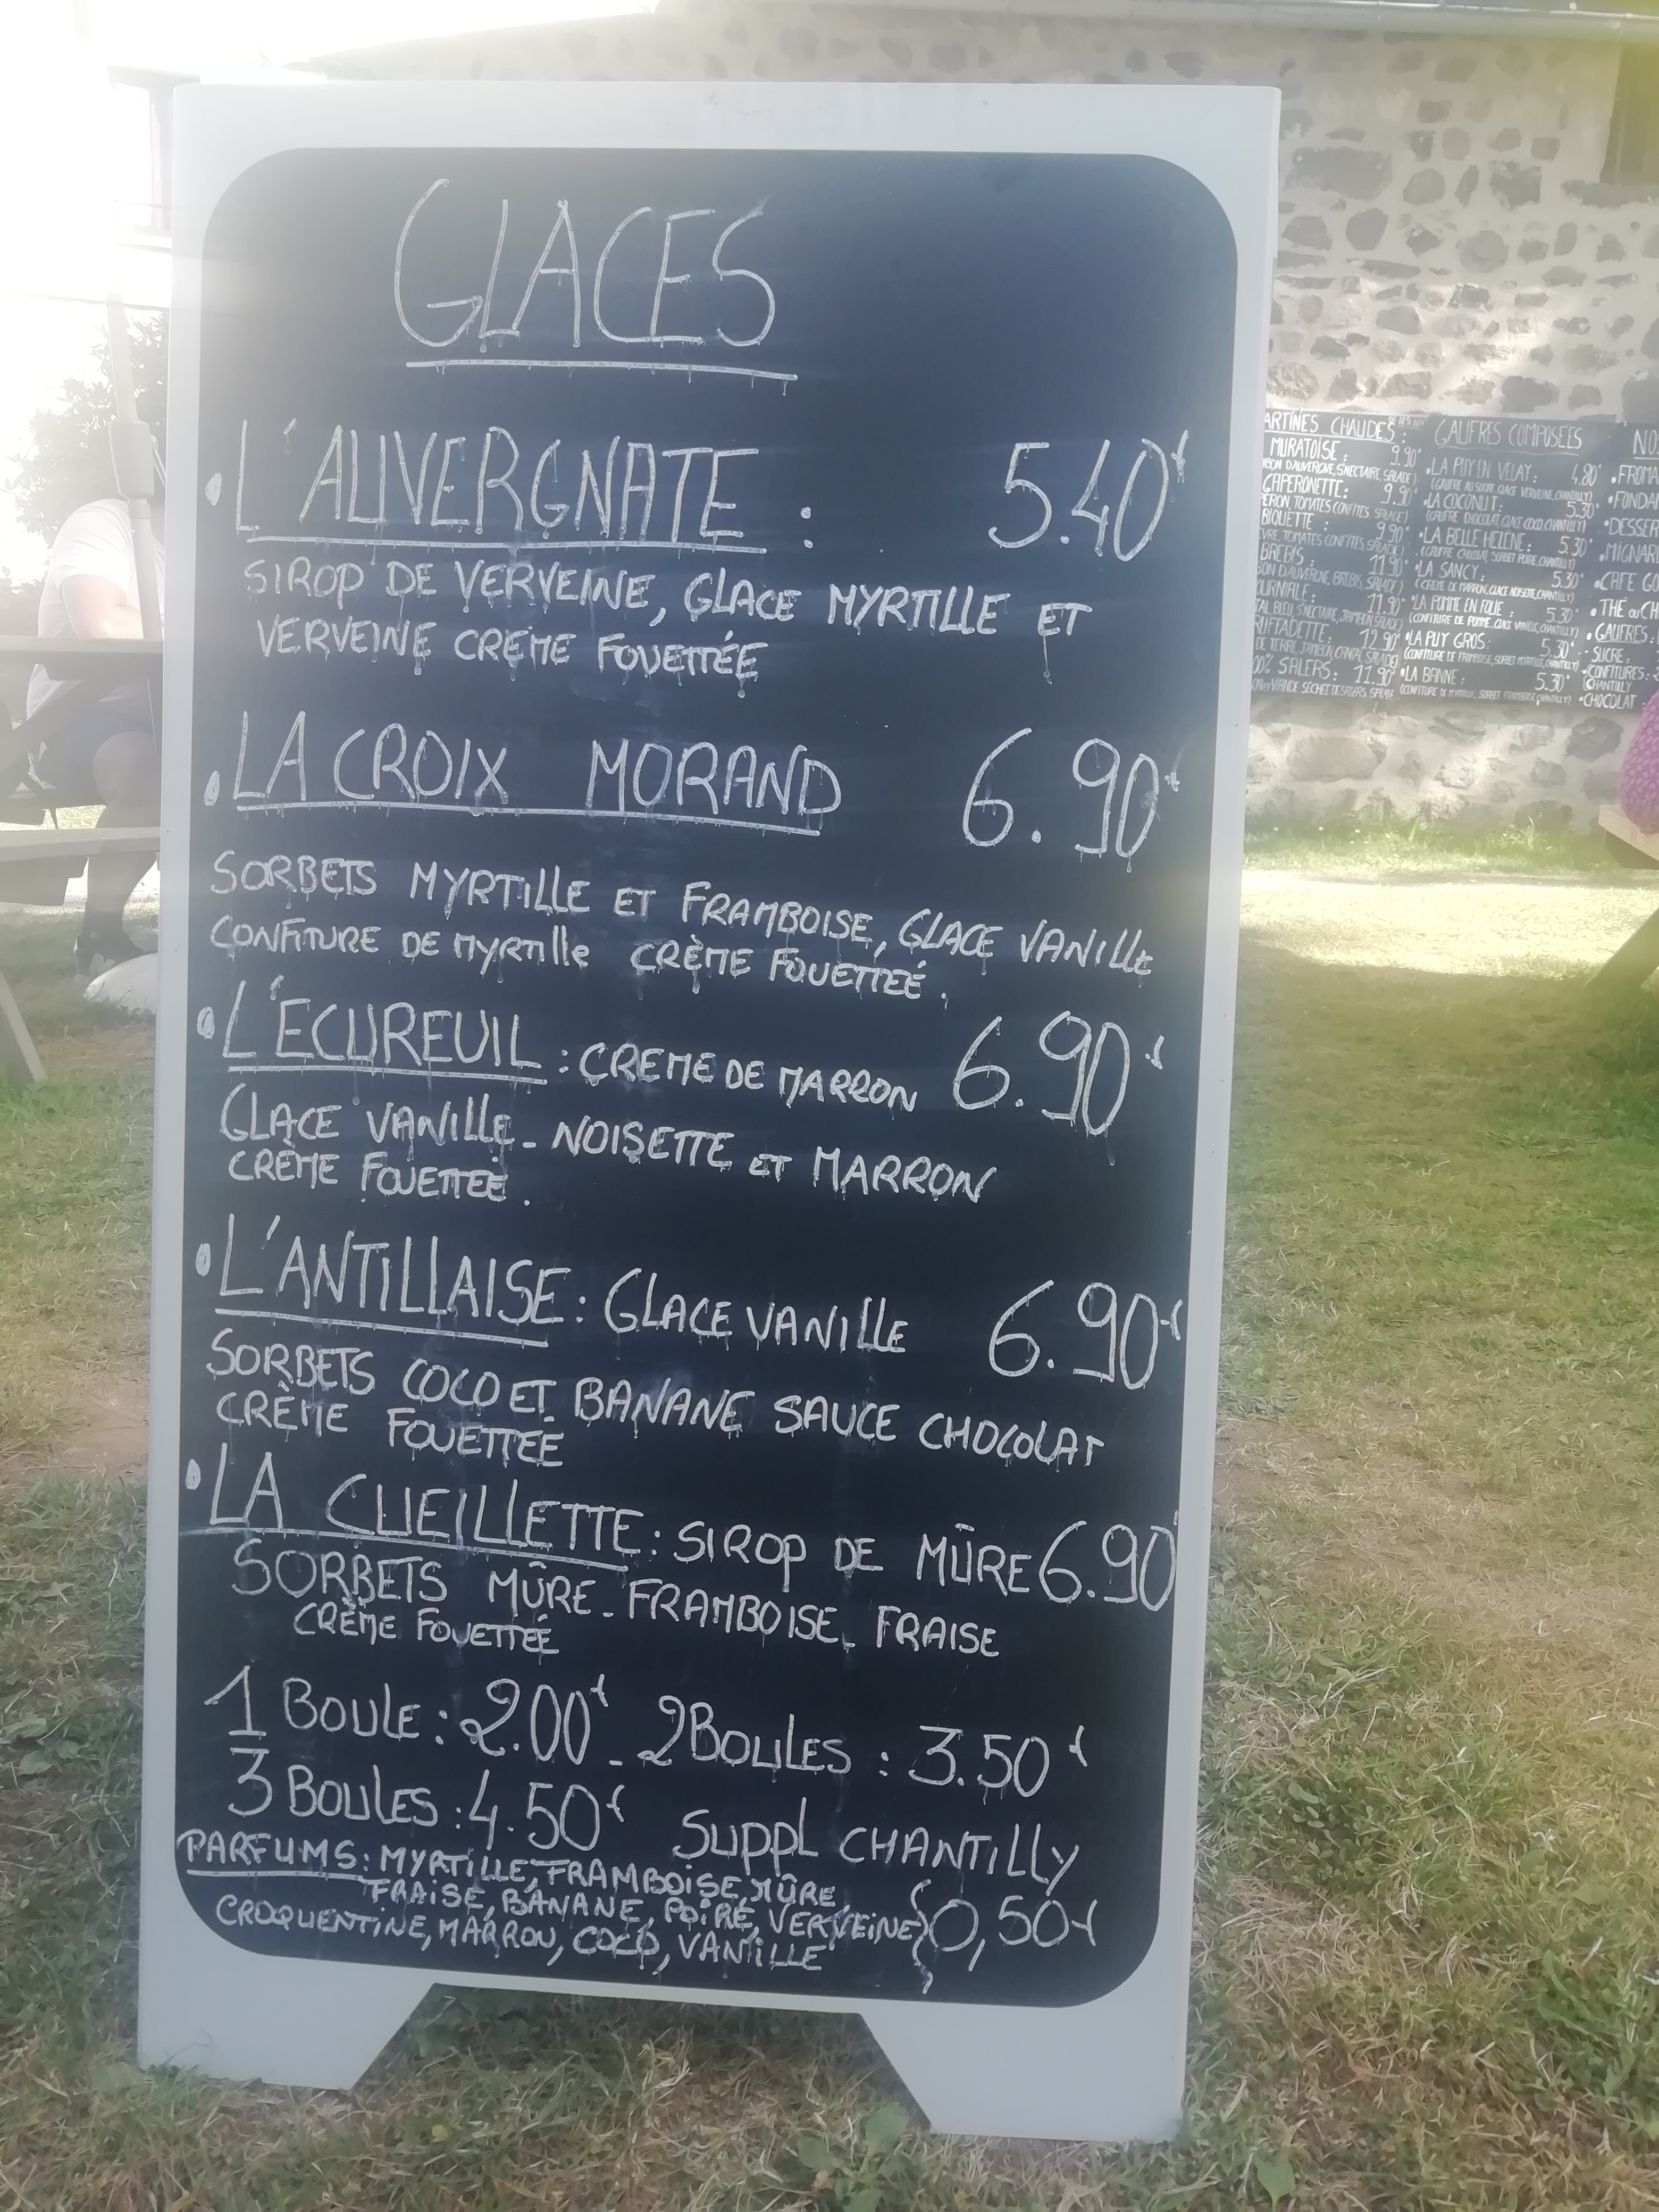 GLACES
• L'AUVERGNATE : 5.40€
SIROP DE VERVEINE, GLACE MYRTILLE ET
VERVEINE CREME FOUETTÉE
• LA CROIX MORAND 6.90€
SORBETS MYRTILLE ET FRAMBOISE, GLACE VANILLE
CONFITURE DE MYRTILLE CRÈME FOUETTEÉ.
• L'ECUREUIL : CREME DE MARRON 6.90€
GLACE VANILLE - NOISETTE ET MARRON
CRÈME FOUETTEE.
• L'ANTILLAISE : GLACE VANILLE 6.90€
SORBETS COCO ET BANANE SAUCE CHOCOLAT
CRÈME FOUETTEE
• LA CUEILLETTE : SIROP DE MÛRE 6.90
SORBETS MÛRE - FRAMBOISE - FRAISE
CRÈME FOUETTÉE
1 BOULE : 2.00€ - 2 BOULES : 3.50€
3 BOULES : 4.50€ SUPPL CHANTILLY
PARFUMS : MYRTILLE, FRAMBOISE, MÛRE,
FRAISE, BANANE, POIRE, VERVEINE } 0,50€
CROQUENTINE, MARRON, COCO, VANILLE
ARTINES CHAUDES :
MURATOISE : 9.90€
CAPERONETTE : 9.90€
BIOLIETTE : 9.90€
BREBIS : 11.90€
11.90€
12.90€
SALERS : 11.90€
GAUFRES COMPOSEES
• LA PUY EN VELAY : 4.80€
(GAUFRE AU SUCRE, GLACE VERVEINE, CHANTILLY)
• LA COCONUT : 5.30€
(GAUFRE CHOCOLAT, GLACE COCO, CHANTILLY)
• LA BELLE HELENE : 5.30€
(GAUFRE CHOCOLAT, SORBET POIRE, CHANTILLY)
• LA SANCY : 5.30€
(CREME DE MARRON, GLACE NOISETTE, CHANTILLY)
• LA POMME EN FOLIE : 5.30€
(CONFITURE DE POMME, GLACE VANILLE, CHANTILLY)
• LA PUY GROS : 5.30€
(CONFITURE DE FRAMBOISE, SORBET MYRTILLE, CHANTILLY)
• LA BANNE : 5.30€
(CONFITURE DE MYRTILLE, SORBET FRAMBOISE, CHANTILLY)
NOS
• FROMA
• FONDAN
• DESSER
• MIGNARD
• CAFE GO
• THE ou CH
• GAUFRES :
SUCRE :
CONFITURES :
CHANTILLY
• CHOCOLAT :